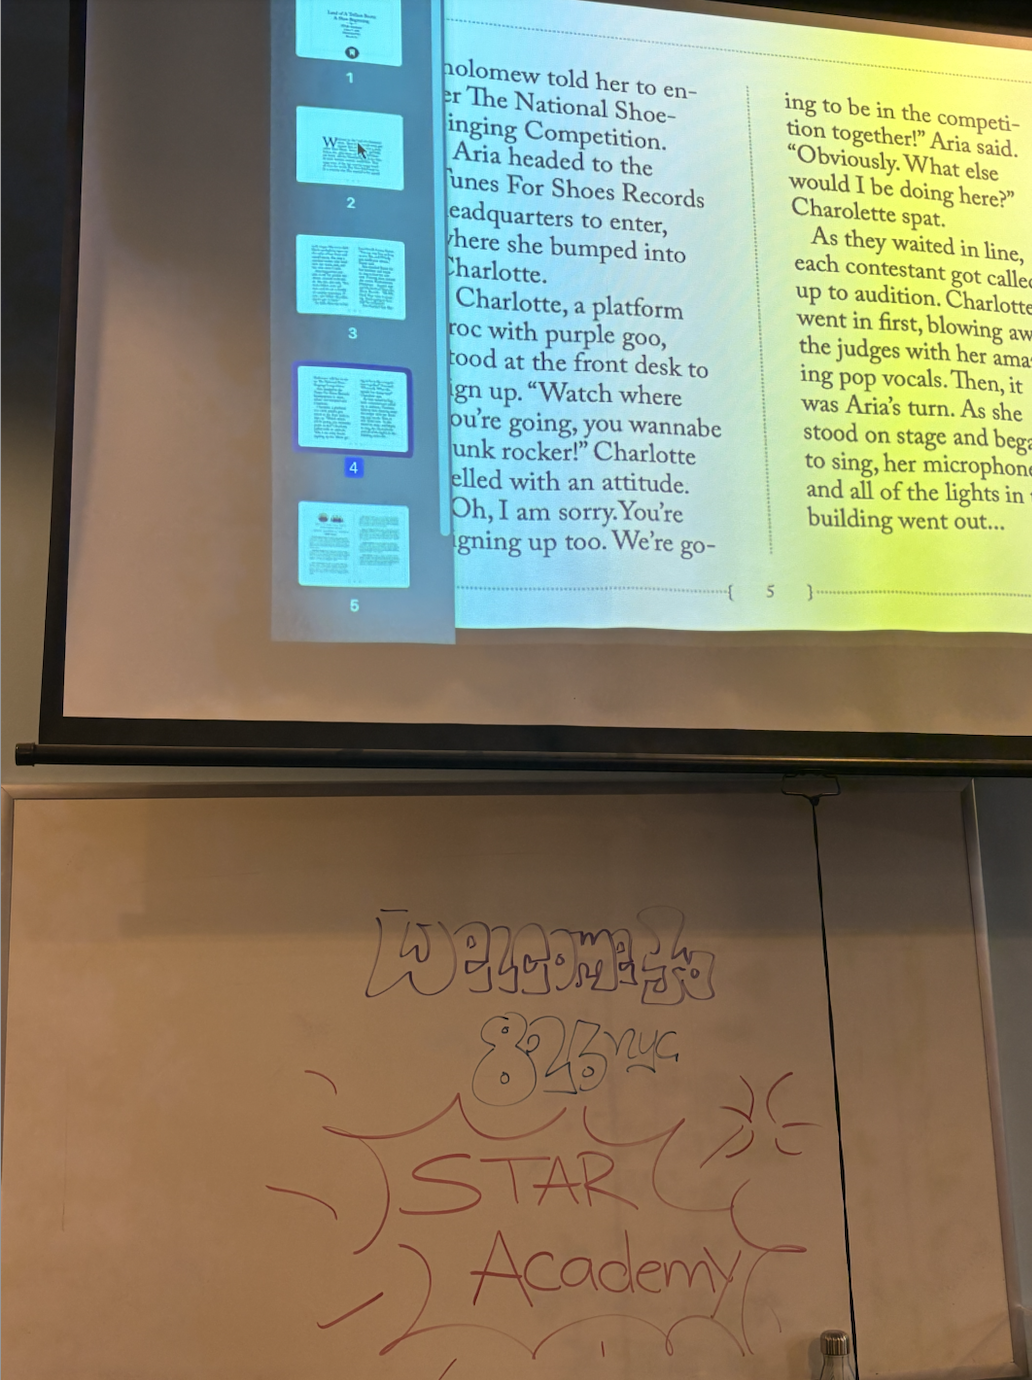 Land of A Trillion Boots:
A New Beginning
1
2
3
4
5
holomew told her to en-
er The National Shoe-
inging Competition.
Aria headed to the
Tunes For Shoes Records
eadquarters to enter,
where she bumped into
Charlotte.
Charlotte, a platform
roc with purple goo,
tood at the front desk to
ign up. “Watch where
ou’re going, you wannabe
unk rocker!” Charlotte
elled with an attitude.
Oh, I am sorry.You’re
igning up too. We’re go-
ing to be in the competi-
tion together!” Aria said.
“Obviously. What else
would I be doing here?”
Charolette spat.
As they waited in line,
each contestant got called
up to audition. Charlotte
went in first, blowing aw
the judges with her ama
ing pop vocals. Then, it
was Aria’s turn. As she
stood on stage and bega
to sing, her microphone
and all of the lights in
building went out...
{ 5 }
Welcome to
826 nyc
STAR
Academy